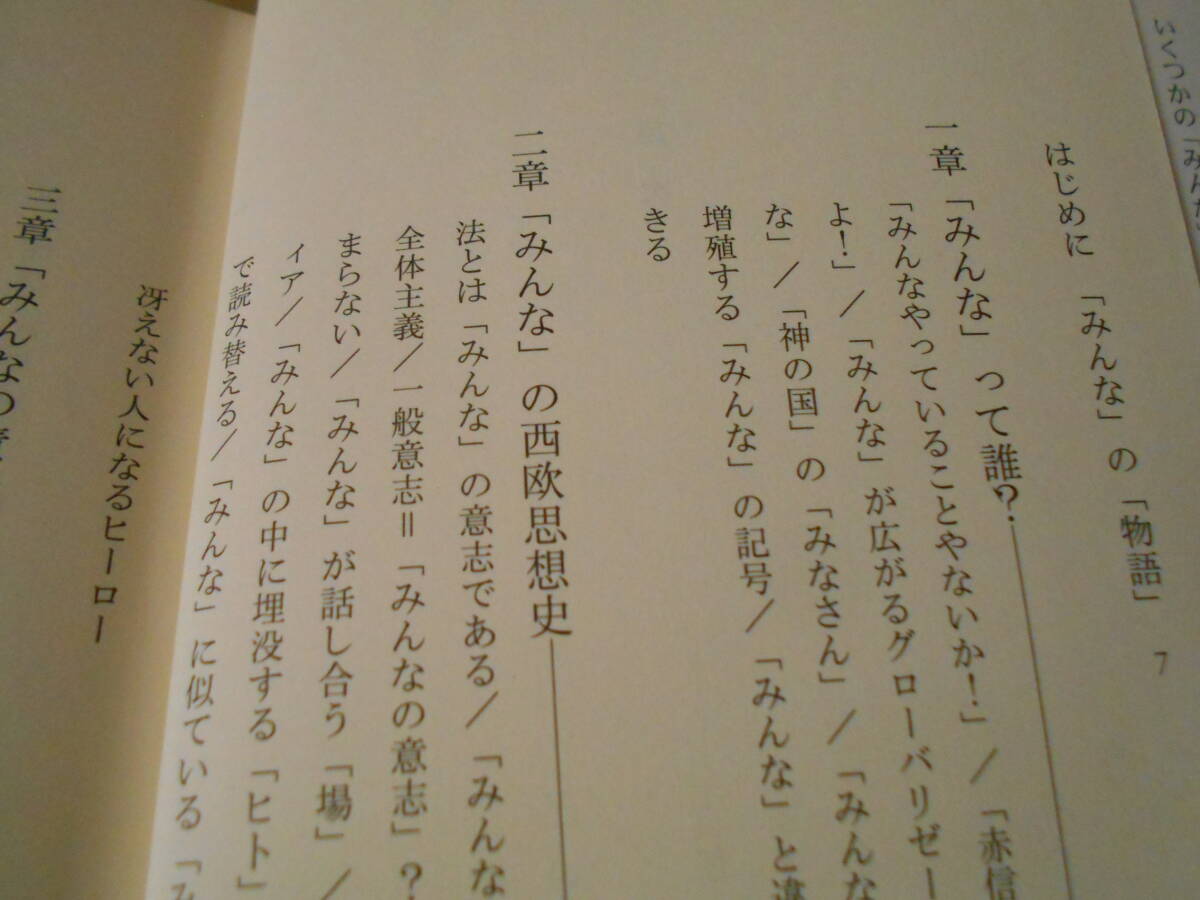 いくつかの「みんな
はじめに 「みんな」の「物語」 7
一章 「みんな」って誰？
「みんなやっていることやないか！」／「赤信
よ！」／「みんな」が広がるグローバリゼー
な」／「神の国」の「みなさん」／「みんな
増殖する「みんな」の記号／「みんな」と違
きる
二章 「みんな」の西欧思想史
法とは「みんな」の意志である／「みんな
全体主義／一般意志＝「みんなの意志」？
まらない／「みんな」が話し合う「場」／
ィア／「みんな」の中に埋没する「ヒト」
で読み替える／「みんな」に似ている「み
冴えない人になるヒーロー
三章 「みんなの